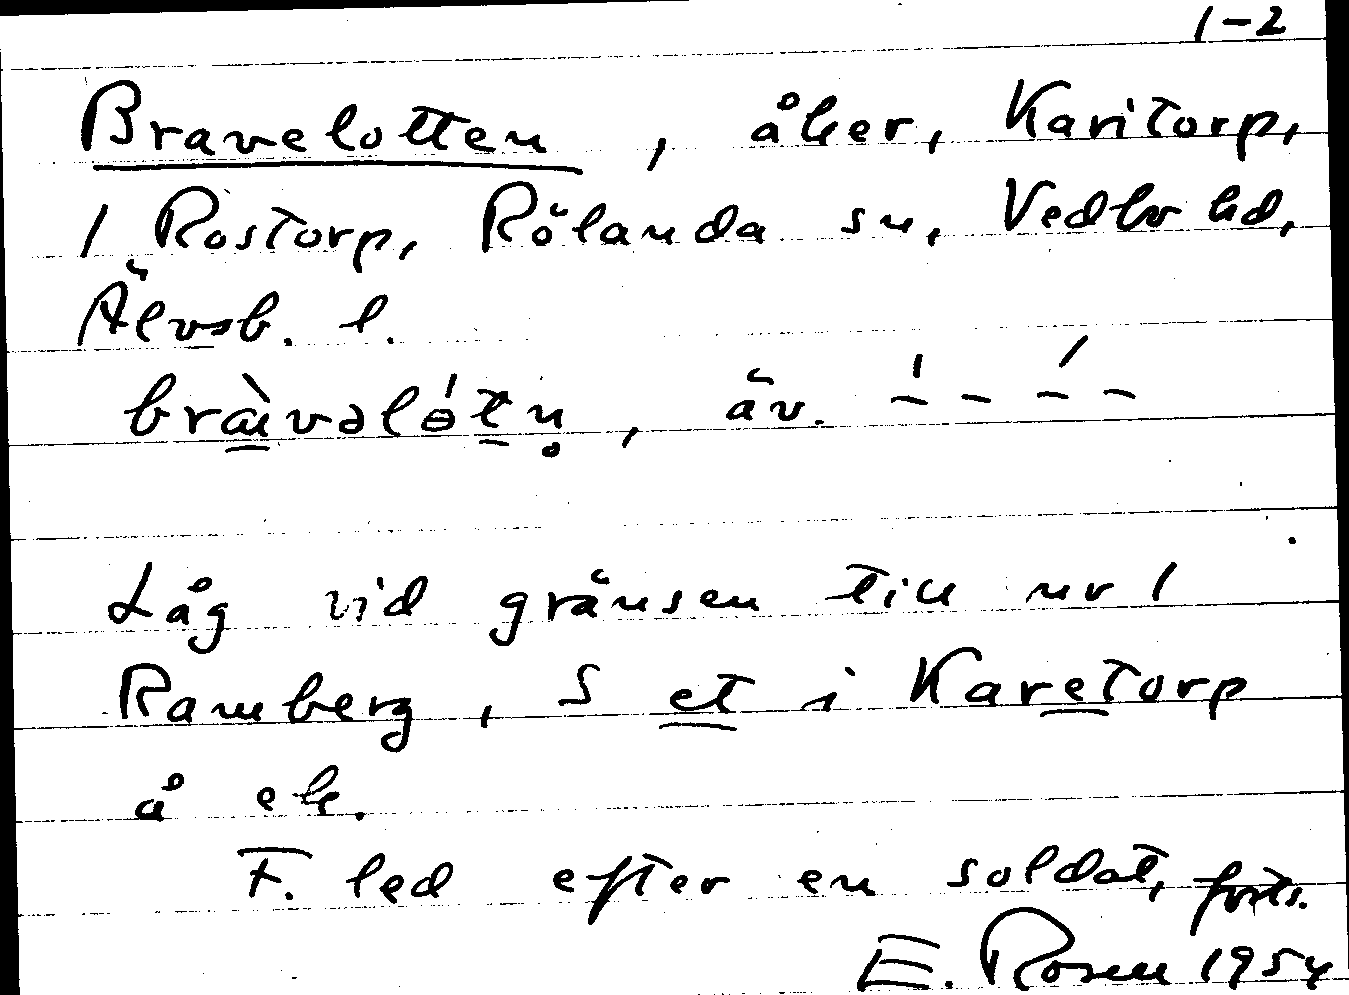 1-2
Bravelotten, åker, Karitorp,
1 Rostorp, Rölanda sn, Vedbo hd,
Älvsb. l.
bràvəlɵ́tn̥, äv. – – – –
Låg vid gränsen till nr 1
Ramberg, S et i Karetorp
å ek.
F. led efter en soldat, forts.
E. Rosen 1954